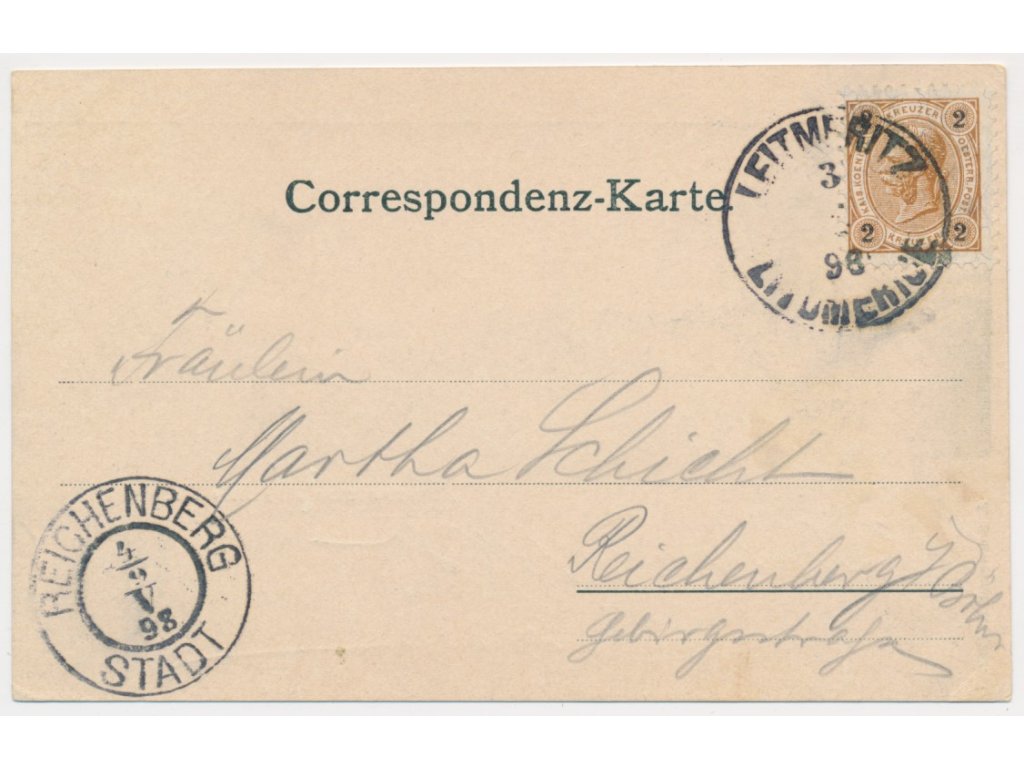 Correspondenz-Karte.
LEITMERITZ
3
98
LITOMĚŘICE
2 KREUZER 2
KAIS. KOENIGL. OESTERR. POST
2 KREUZER 2
Fräulein
Martha Schicht
Reichenberg i/Böhm
Gebirgsstraße
REICHENBERG
4/2
V
98
STADT